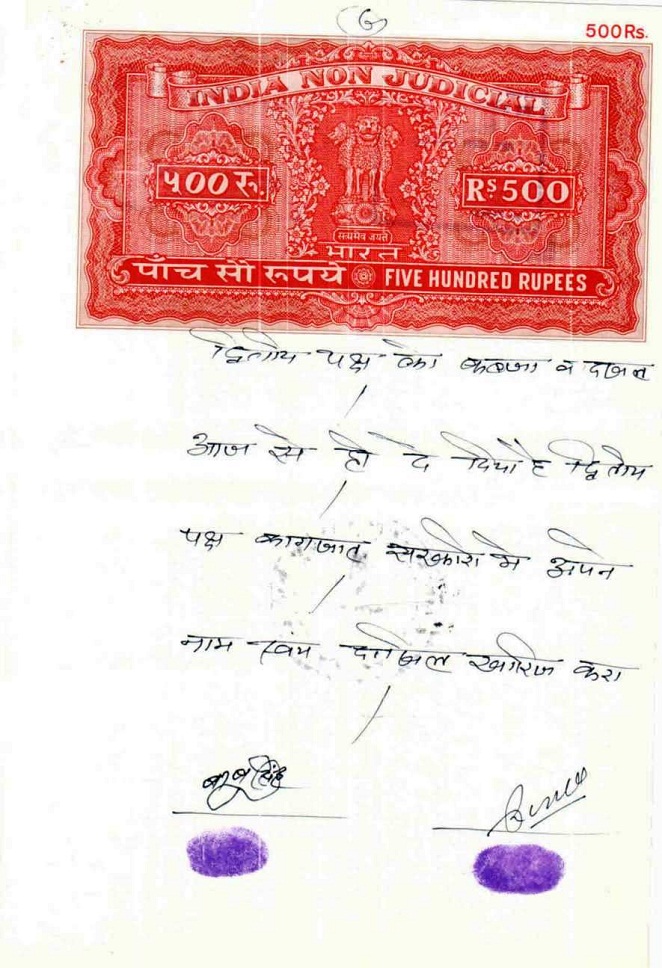 (6)
500Rs.
INDIA NON JUDICIAL
५00 रु.
Rs 500
सत्यमेव जयते
भारत
पाँच सौ रूपये FIVE HUNDRED RUPEES
द्वितीय पक्ष का कब्जा व दखल
आज से ही दे दिया है द्वितीय
पक्ष कागजात सरकारी मे अपने
नाम स्वंय दाखिल खारिज करा